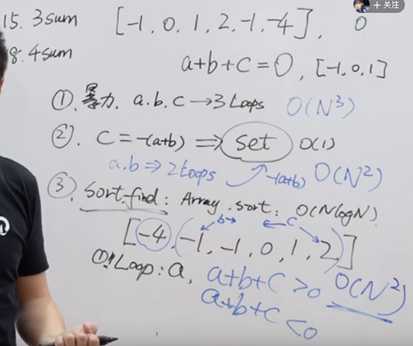 15. 3sum [-1, 0, 1, 2, -1, -4], 0
8. 4sum a+b+c=0, [-1,0,1]
①. 暴力. a.b.c → 3Loops O(N³)
②. c = -(a+b) ⇒ set O(1)
a.b ⇒ 2Loops -(a+b) O(N²)
③. Sort.find: Array.sort: O(NlogN)
b→ ←c
[-4, -1, -1, 0, 1, 2]
① Loop: a, a+b+c>0 O(N²)
a+b+c<0
+ 关注